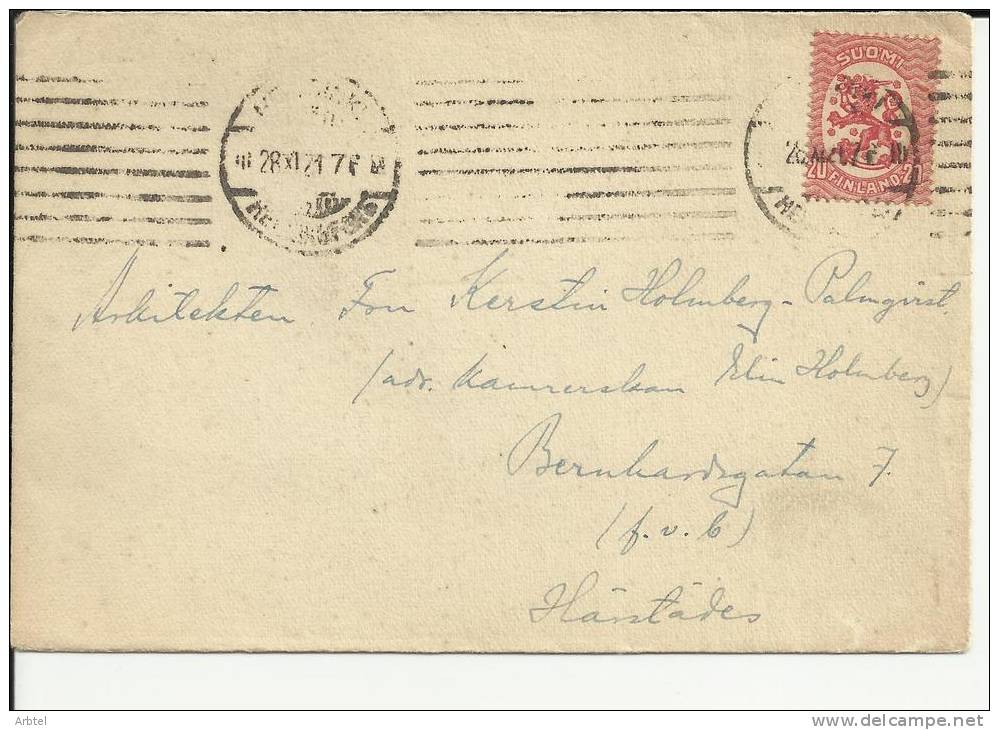 SUOMI
20 FINLAND 20
28 XI 21 7
HELSINGFORS
Arkitekten Fru Kerstin Holmberg-Palmqvist.
(adr. Kamrerskan Elin Holmberg)
Bernhardsgatan 7.
(f. v. b)
Härstädes
Arbtel
delcampe.net